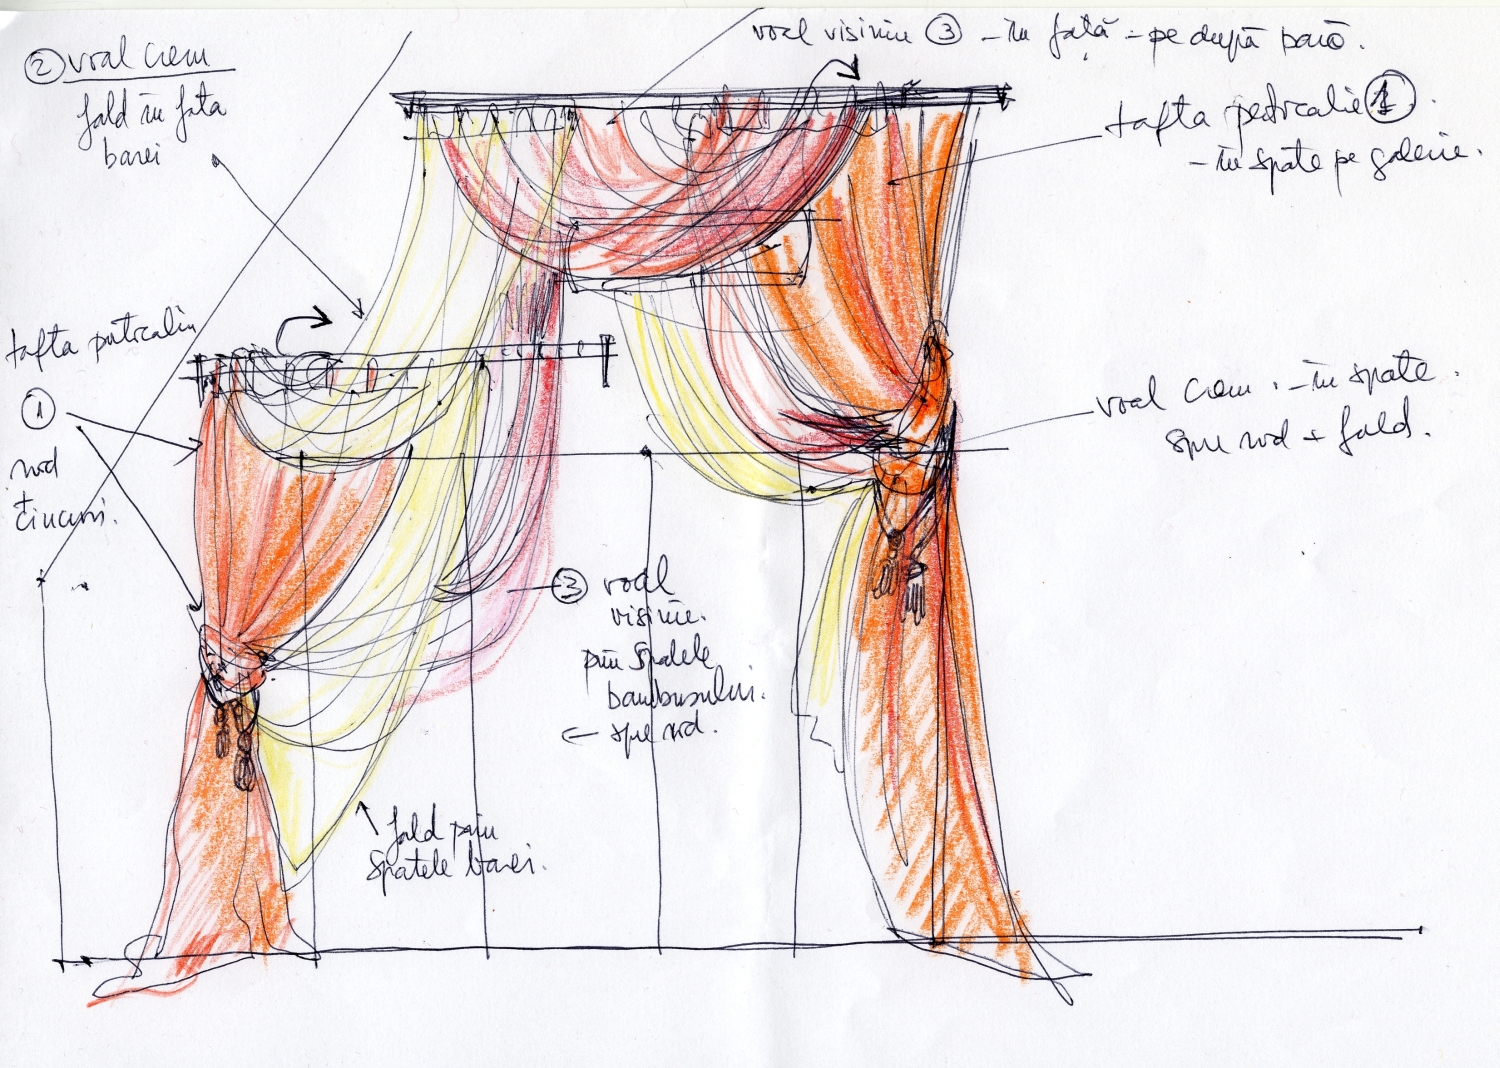 ② voal crem
fald în fața
barei
voal visiniu ③ - în față - pe după bară.
tafta portocalie ①.
- în spate pe galerie.
tafta portocaliu
①
nod
+
ciucuri.
voal crem. - în spate.
spre nod + fald.
③ voal
visiniu.
prin spatele
bambusului.
← spre nod.
fald prin
spatele barei.